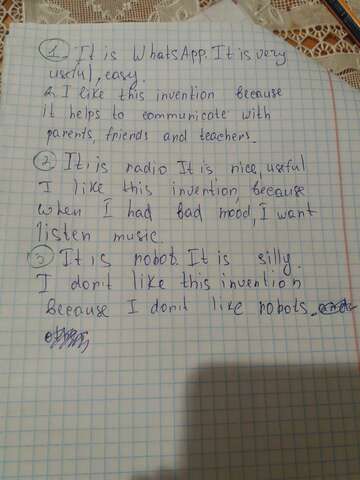 1 It is WhatsApp. It is very
useful, easy.
I like this invention because
it helps to communicate with
parents, friends and teachers.
2 It is radio It is nice, useful
I like this invention, because
when I had bad mood, I want
listen music.
3 It is robot. It is silly.
I don't like this invention
because I don't like robots.